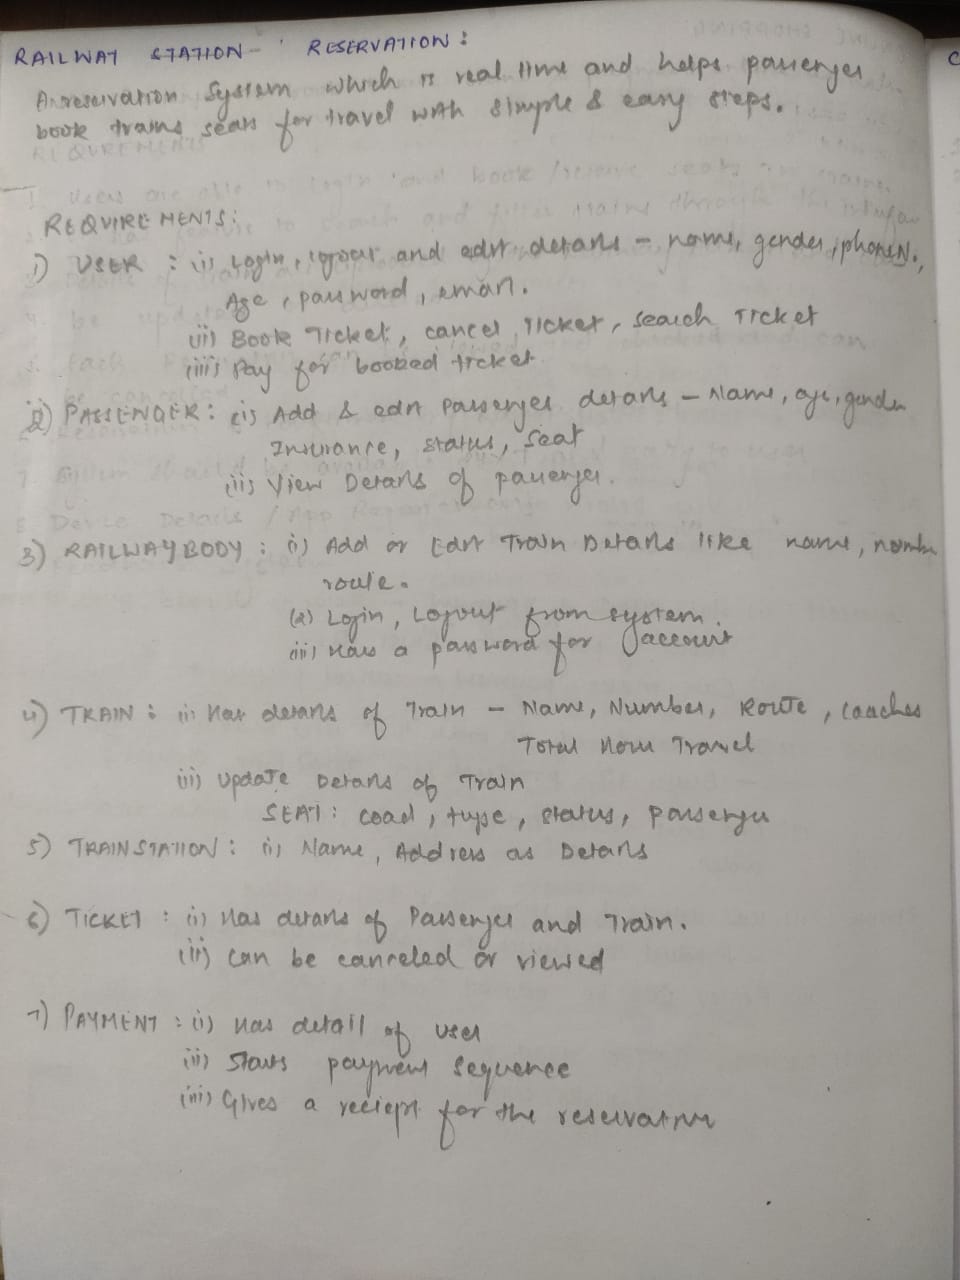 RAILWAY STATION - RESERVATION :
A reservation system which is real time and helps passenger
book trains seats for travel with simple & easy steps.
REQUIREMENTS:
1) USER : (i) Login, logout and edit details - name, gender, phone No.,
Age, password, email.
(ii) Book Ticket, cancel Ticket, search Ticket
(iii) Pay for booked ticket
2) PASSENGER : (i) Add & edit Passenger details - Name, age, gender
Insurance, status, seat
(ii) View Details of passenger.
3) RAILWAY BODY : (i) Add or Edit Train Details like name, number
route.
(2) Login, Logout from system.
(iii) Has a password for account
4) TRAIN : (i) Has details of Train - Name, Number, Route, coaches
Total Hour Travel
(ii) Update Details of Train
SEAT : coad, type, status, passenger
5) TRAIN STATION : (i) Name, Address as Details
6) TICKET : (i) Has details of Passenger and Train.
(ii) can be canceled or viewed
7) PAYMENT : (i) Has detail of user
(ii) Starts payment sequence
(iii) Gives a reciept for the reservation
C